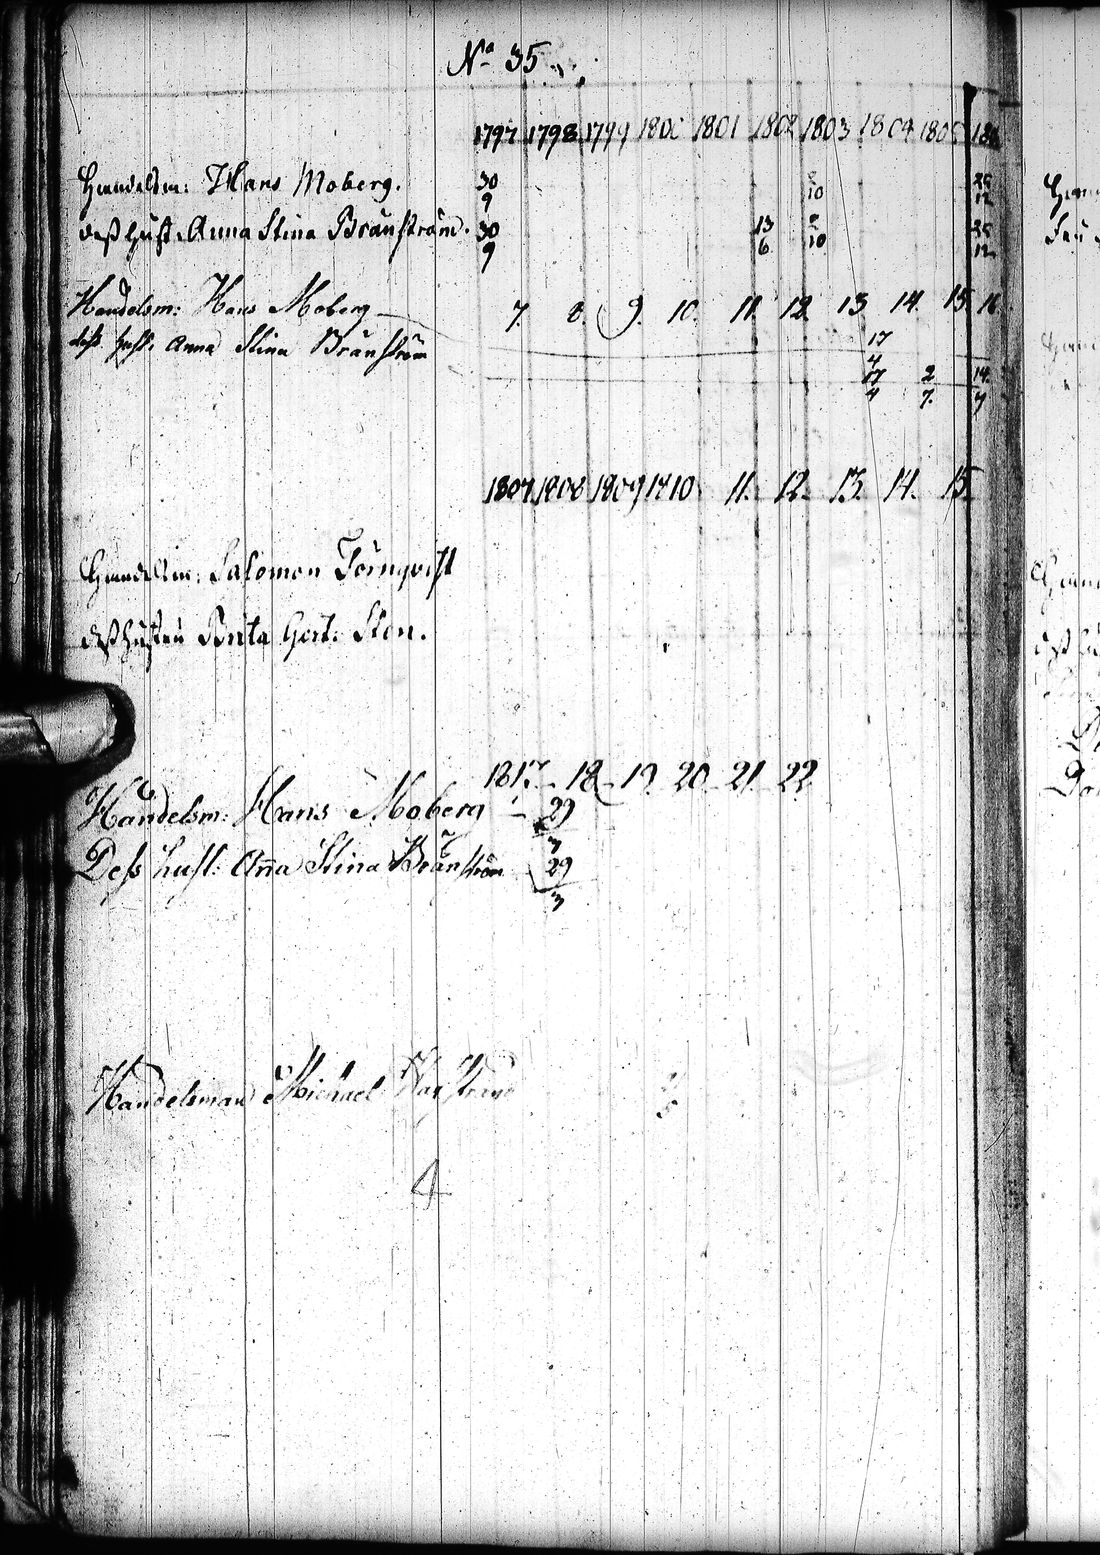 No 35
1797 1798 1799 1800 1801 1802 1803 1804 1805
Handelsm: Hans Moberg. 30/9 10 25/12
dess hust. Anna Stina Bränström. 30/9 13/6 10 25/12
Handelsm: Hans Moberg 7. 8. 9. 10. 11. 12. 13. 14. 15. 16.
dess hust. Anna Stina Bränström 17/4
17/4 2/7. 14./7
1807 1808 1809 1810 11. 12. 13. 14. 15.
Handelsm: Salomon Törnqvist
dess hustru Brita Gert. Sten.
1817 18 19 20 21 22
Handelsm: Hans Moberg 29/3
Dess hust: Anna Stina Bränström 29/3
Handelsman Michael
4